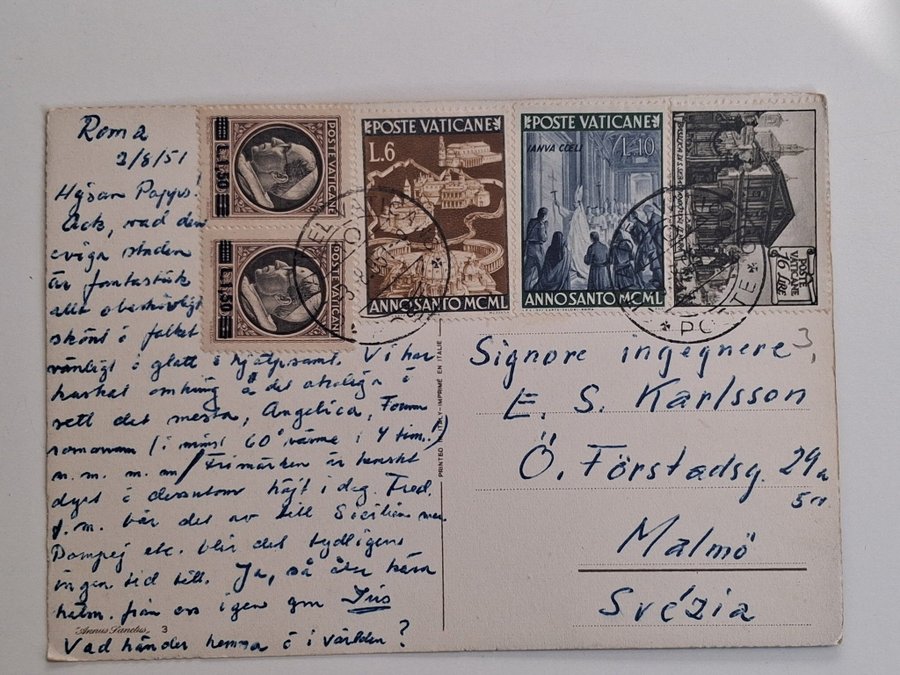 Roma
2/8/51
Hejsan Pappis!
Ack, vad den
eviga staden
är fantastisk
allt obeskrivligt
skönt å folket
vänligt å glatt å hjälpsamt. Vi har
kuskat omkring å det otroliga å
sett det mesta, Angelica, Forum
romanum (i minst 60° värme i 4 tim.!)
m.m. m.m. Frimärken är
dyrt å dessutom höjt i dag. Fred.
f.m. bär det av till Sicilien men
Pompej etc. blir det tydligen
ingen tid till. Ja, så åter kära
häls. från oss igen gm Iris
Vad händer hemma å i världen?
Annus Sanctus, 3
PRINTED IN ITALY-IMPRIMÉ EN ITALIE
POSTE VATICANE
L. 1,50
POSTE VATICANE
L. 1,50
POSTE VATICANE
L.6
ANNO SANTO MCML
POSTE VATICANE
IANVA CŒLI
L.10
ANNO SANTO MCML
POSTE
VATICANE
16 LIRE
POSTE
Signore ingegnere
3,
E. S. Karlsson
Ö. Förstadsg. 29a
Malmö
Svézia